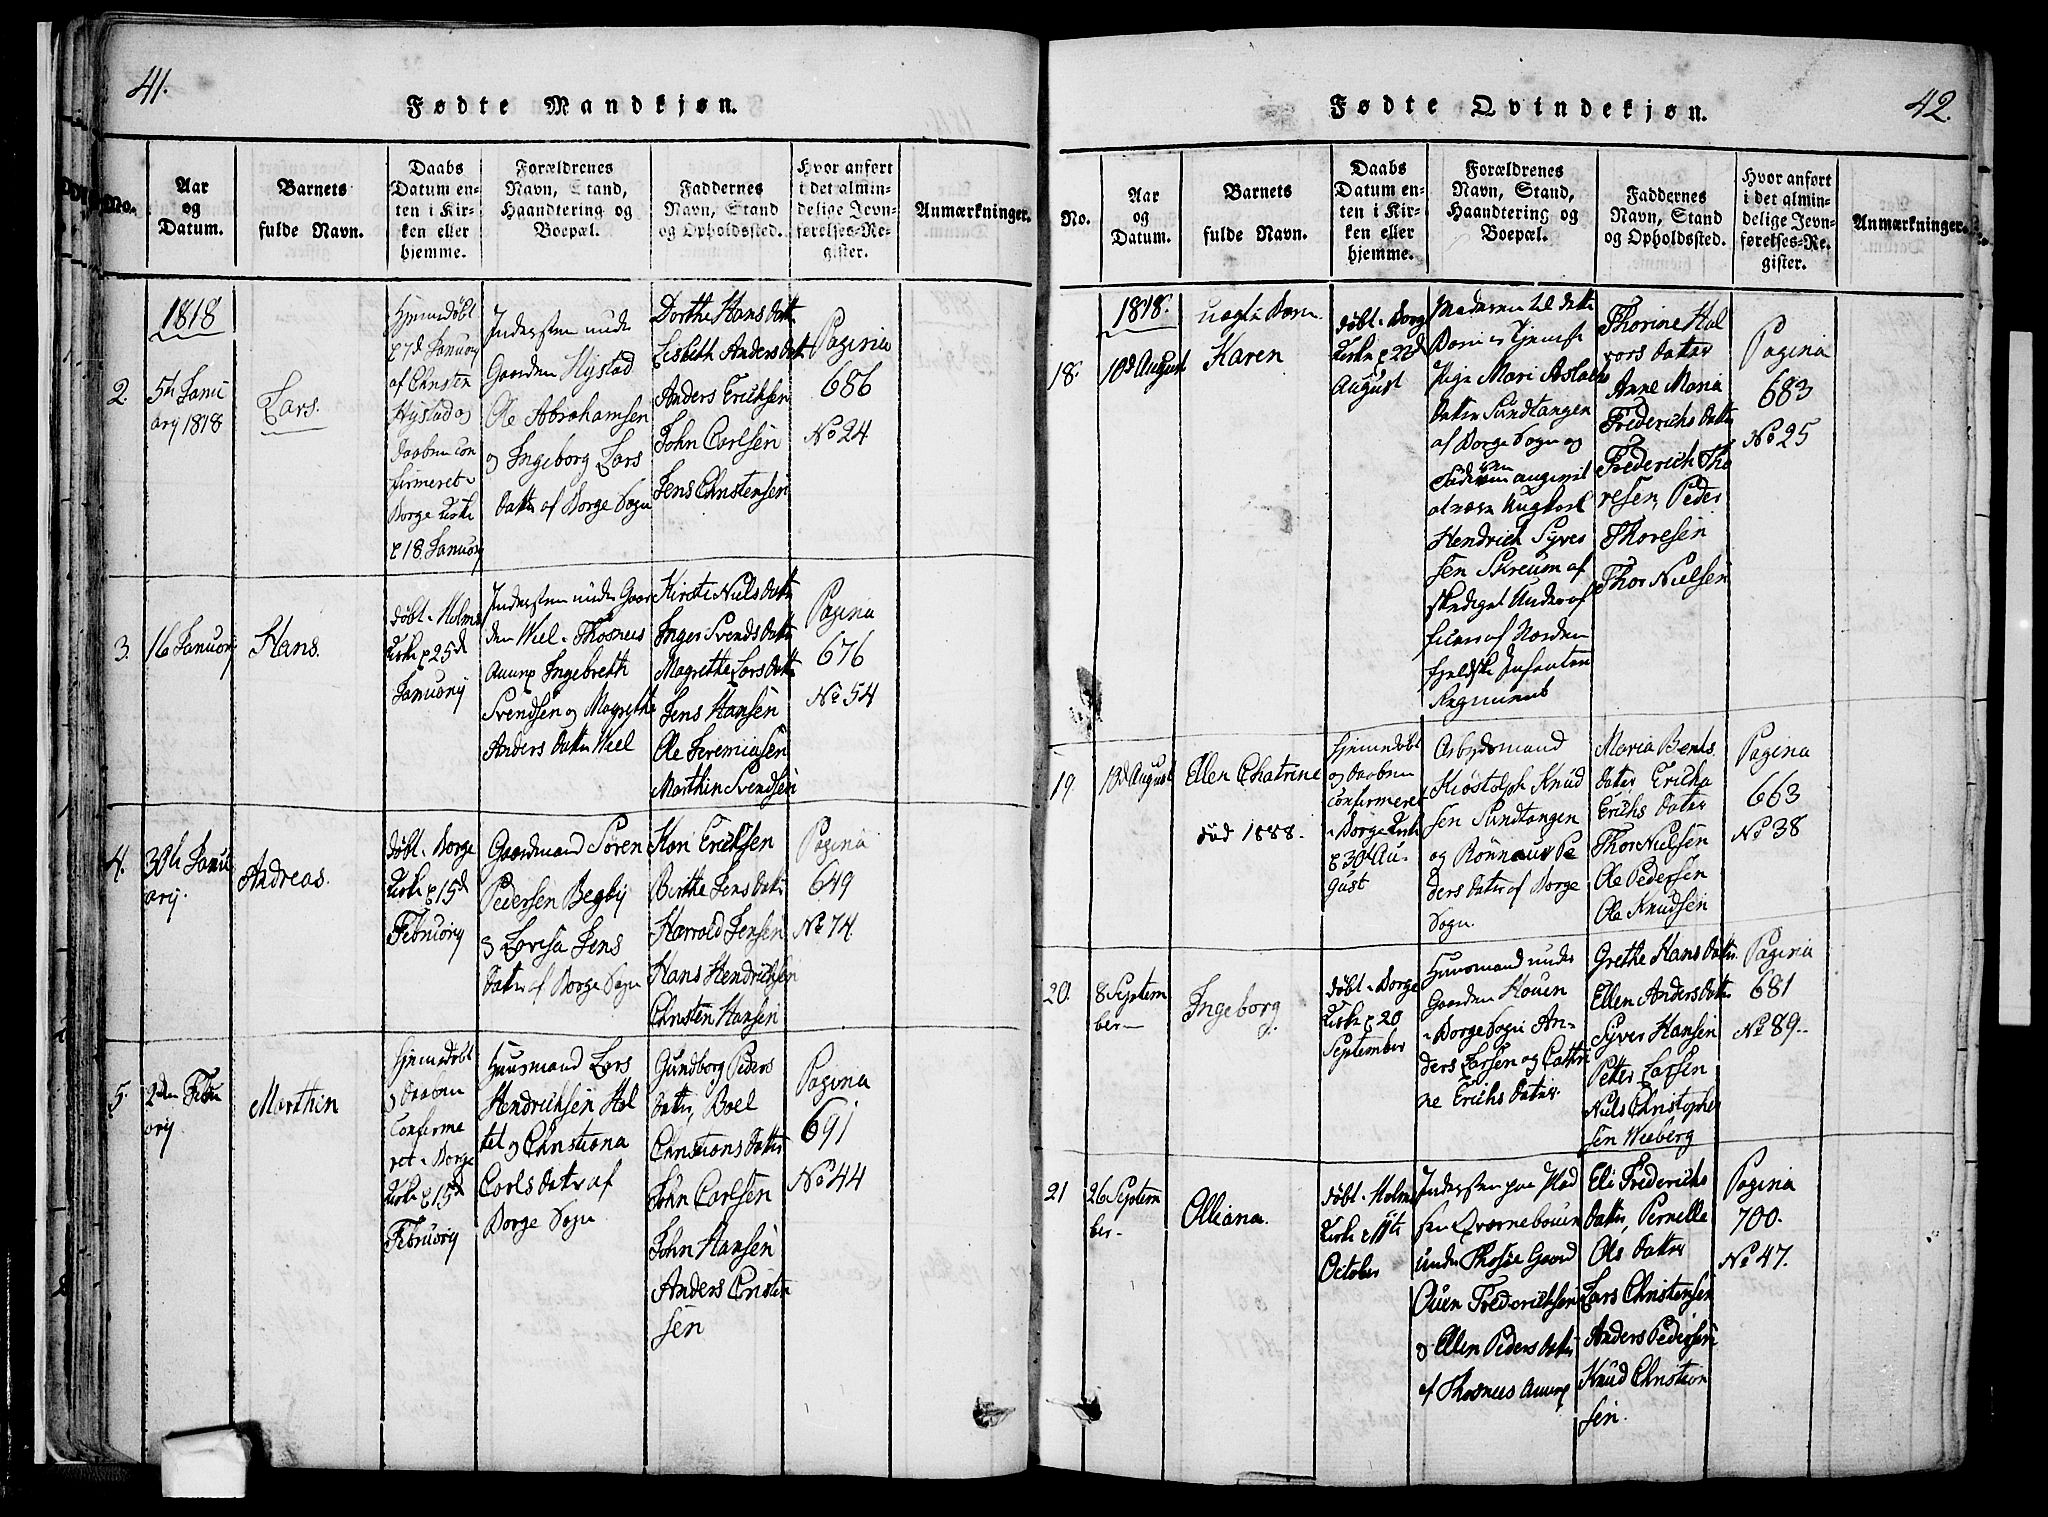 41.
Fødte Mandkjøn.
No.
Aar
og
Datum.
Barnets
fulde Navn.
Daabs
Datum en-
ten i Kir-
ken eller
hjemme.
Forældrenes
Navn, Stand,
Haandtering og
Boepæl.
Faddernes
Navn, Stand
og Opholdssted.
Hvor anført
i det almin-
delige Jevn-
førelses-Re-
gister.
Anmærkninger.
1818
2.
5th Janu
arij 1818
Lars.
Hjemedøbt
7d Januarij
af Christen
Hystad og
daaben con
firmeret i
Borge Kirke
18. Januarij
Indersten under
Gaarden Hystad
Ole Abrahamsen
og Ingeborg Lars
datter af Borge Sogn
Dorthe Hans datter
Lisbeth Anders datter
Anders Ericksen
John Carlsen
Jens Christensen
Pagina
686
No 24
3.
16 Januarij
Hans.
døbt i Holms
Kirke 25d
Januarij
Indersten under Gaar
den Wiel i Thosnes
Ingebreth
Svendsen og Magrethe
Anders datter Wiel
Kirsti Niels datter
Inger Svends datter
Magrethe Lars datter
Jens Hansen
Ole Jeremiasen
Marthin Svendsen
Pagina
676
No 54
4.
30th Janu
arij.
Andreas.
døbt i Borge
Kirke 15d
Februarij
Gaardmand Søren
Pedersen Begbij
og Lovisa Jens
datter af Borge Sogn
Kari Ericksen
Berthe Jens datter
Harrald Jensen
Hans Hendrichsen
Christen Hansen
Pagina
649
No 74
5.
2den Febru
arij
Marthin
Hjemedøbt
og daaben
Confirme
ret i Borge
Kirke 15d
Februarij
Huusmand Lars
Hendrichsen Hol
tet og Christiana
Carls datter af
Borge Sogn
Gundborg Peders
datter, Boel
Christians datter
John Carlsen
John Hansen
Anders Cristen
sen
Pagina
691
No 44
42.
Fødte Qvindekjøn.
No.
Aar
og
Datum.
Barnets
fulde Navn.
Daabs
Datum en-
ten i Kir-
ken eller
hjemme.
Forældrenes
Navn, Stand,
Haandtering og
Boepæl.
Faddernes
Navn, Stand
og Opholdssted.
Hvor anført
i det almin-
delige Jevn-
førelses-Re-
gister.
Anmærkninger.
1818.
18.
10d August
uægte Barn
Karen
døbt i Borge
Kirke 22d
August
Moderen til dette
Barn er Tjeneste
Pige Mari Aslachs
datter Sundtangen
af Borge Sogn og
Faderen angivet
at være Ungkarl
Hendrich Syver
sen Skreum af
Under of
ficier af Norden
fjeldske Infanteri
Regiment
Thorine Hal
vors datter
Anne Maria
Frederichs datter
Frederich Tho
resen, Peder
Thoresen
Thor Nielsen
Pagina
683
No 25
19.
10d August
Ellen Chatrine
død 1888.
Hjemedøbt
og daaben
Confirmeret
i Borge Kirke
30d Au-
gust
Arbejdsmand
Knud
sen Sundtangen
og Rønnaug Pe
ders datter af Borge
Sogn
Maria Bents
datter Ericha
Erichs datter
Thor Nielsen
Ole Pedersen
Ole Knudsen
Pagina
663
No 38
20.
8 Septem
ber
Ingeborg
døbt i Borge
Kirke 20
September
Huusmand under
Gaarden Houen
i Borge Sogn An-
ders Larsen og Cathri
ne Erichs datter
Grethe Hans datter
Ellen Anders datter
Syver Hansen
Petter Larsen
Niels Christopher
sen Wieberg
Pagina
681
No 89.
21
26 Septem
ber
Olleana.
døbt i Holms
Kirke 11te
October
Indersten paa Plad
sen Qværnebouen
under Thosøe Gaard
Ouen Frederichsen
og Ellen Peders datter
af Thosnes
Eli Frederichs
datter, Pernelle
Ols datter
Lars Christensen
Anders Pedersen
Knud Christian
sen.
Pagina
700.
No 47.